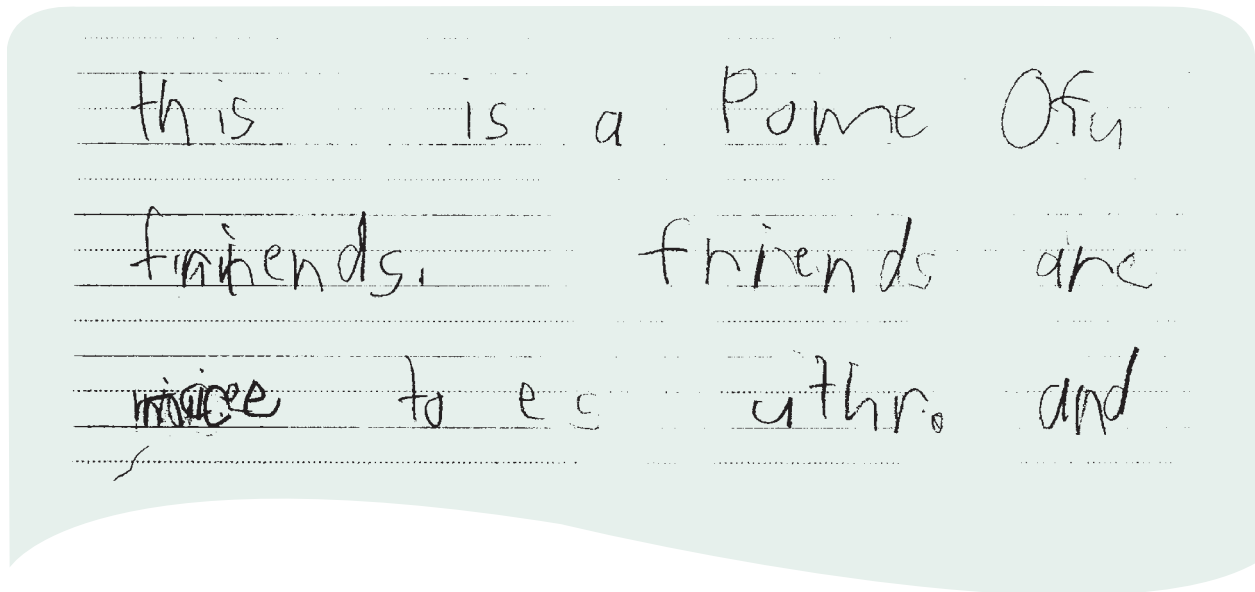 this is a Pome Ofu
friends. friends are
nice to ec uthr. and